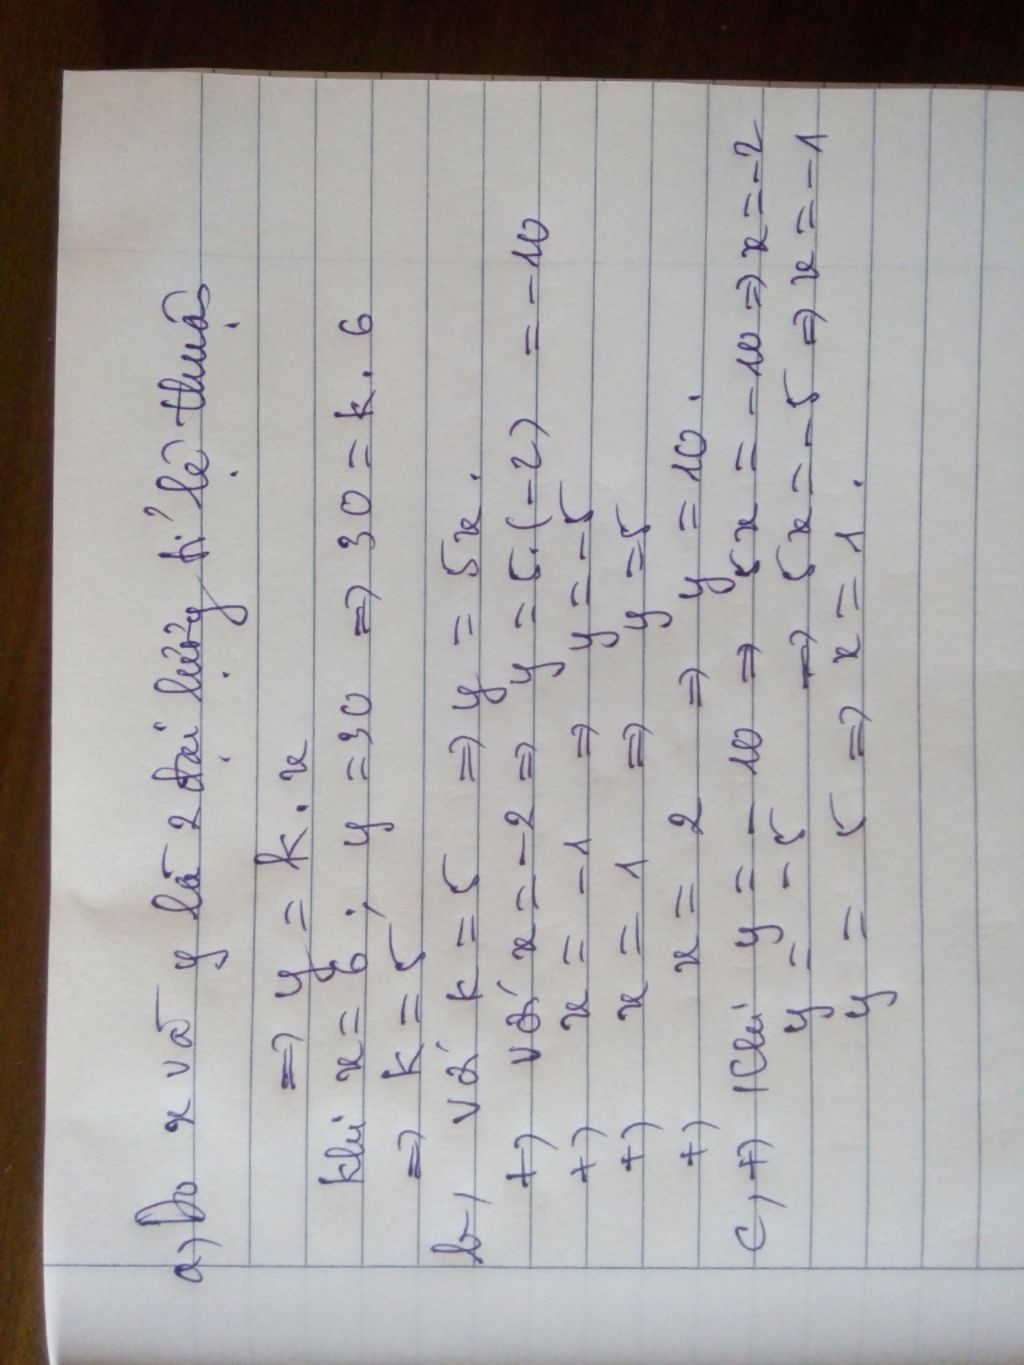 a, Do x và y là 2 đại lượng tỉ lệ thuận
=> y = k . x
khi x = 6 ; y = 30 => 30 = k . 6
=> k = 5
b, với k = 5 => y = 5x .
+) với x = -2 => y = 5.(-2) = -10
+) x = -1 => y = -5
+) x = 1 => y = 5
+) x = 2 => y = 10 .
c, +) Khi y = -10 => 5x = -10 => x = -2
y = -5 => 5x = -5 => x = -1
y = 5 => x = 1 .